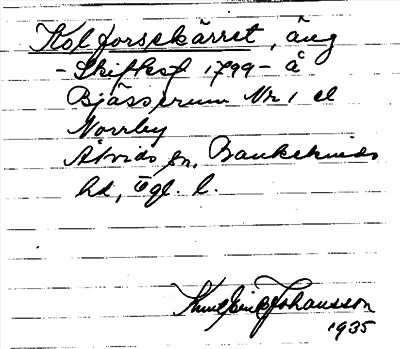 Kolforsekärret, äng
- Skifteskf 1799 - å
Bjässerum Nr 1 el
Norrby
Åtvids sn, Bankekinds
hd, Ögl. l.
Knut Eric Johansson
1935